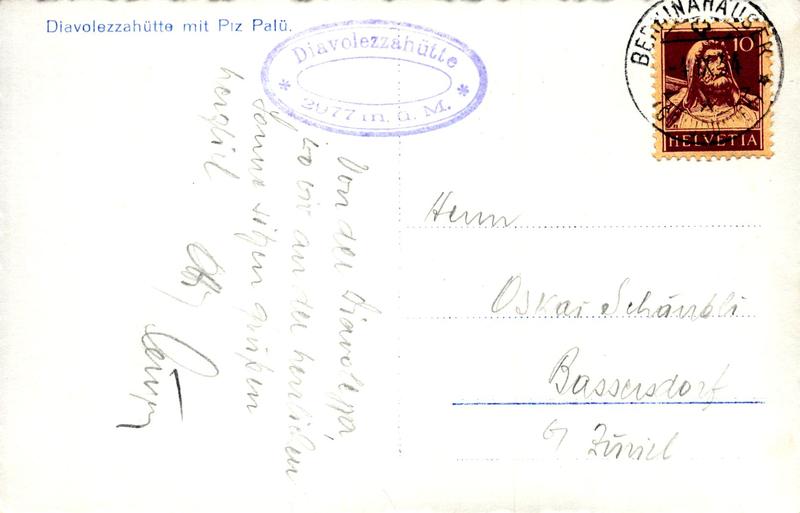 Diavolezzahütte mit Piz Palü.
Diavolezzahütte
* 2977 m. ü. M. *
BERNINAHÄUSER
10
HELVETIA
Von der Diavolezza,
wo wir an der herrlichen
Sonne sitzen grüßen
herzlich
Herrn
Oskar Schäubli
Bassersdorf
b/ Zürich